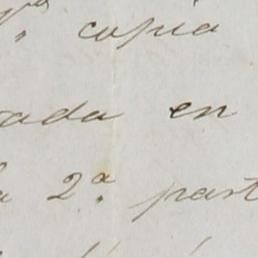 copia
ada en
a 2ª part